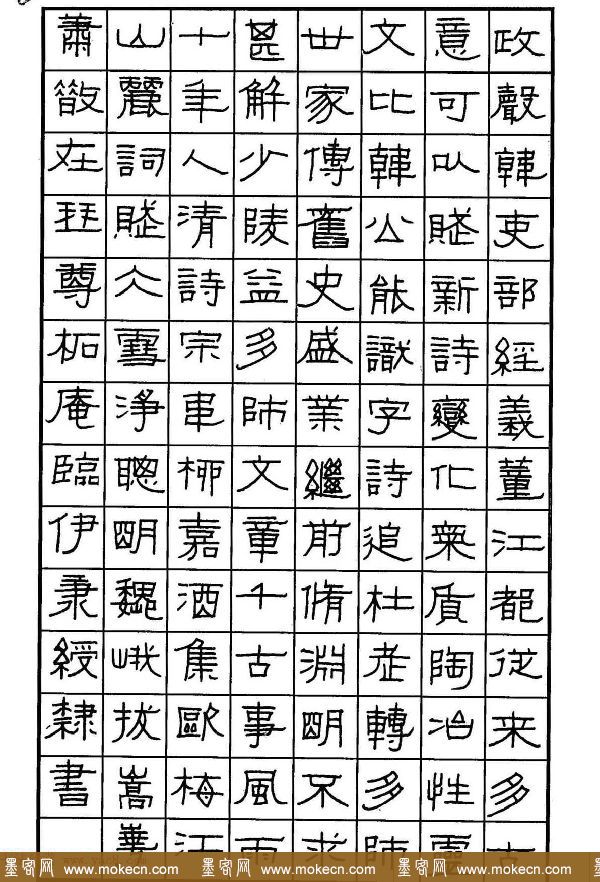 政聲韓吏部經義董江都從来多古
意可以賦新詩變化氣質陶冶性靈
文比韓公能識字詩追杜老轉多師
世家傳舊史盛業繼前脩淵明不求
甚解少陵益多師文章千古事風雨
十年人清詩宗韋柳嘉酒集歐梅江
山麗詞賦仌雪淨聰明魏峨拔嵩華
蕭散在琴尊柘庵臨伊秉綬隸書
墨客网 www.mokecn.com 墨客网 www.mokecn.com 墨客网 www.mokecn.com